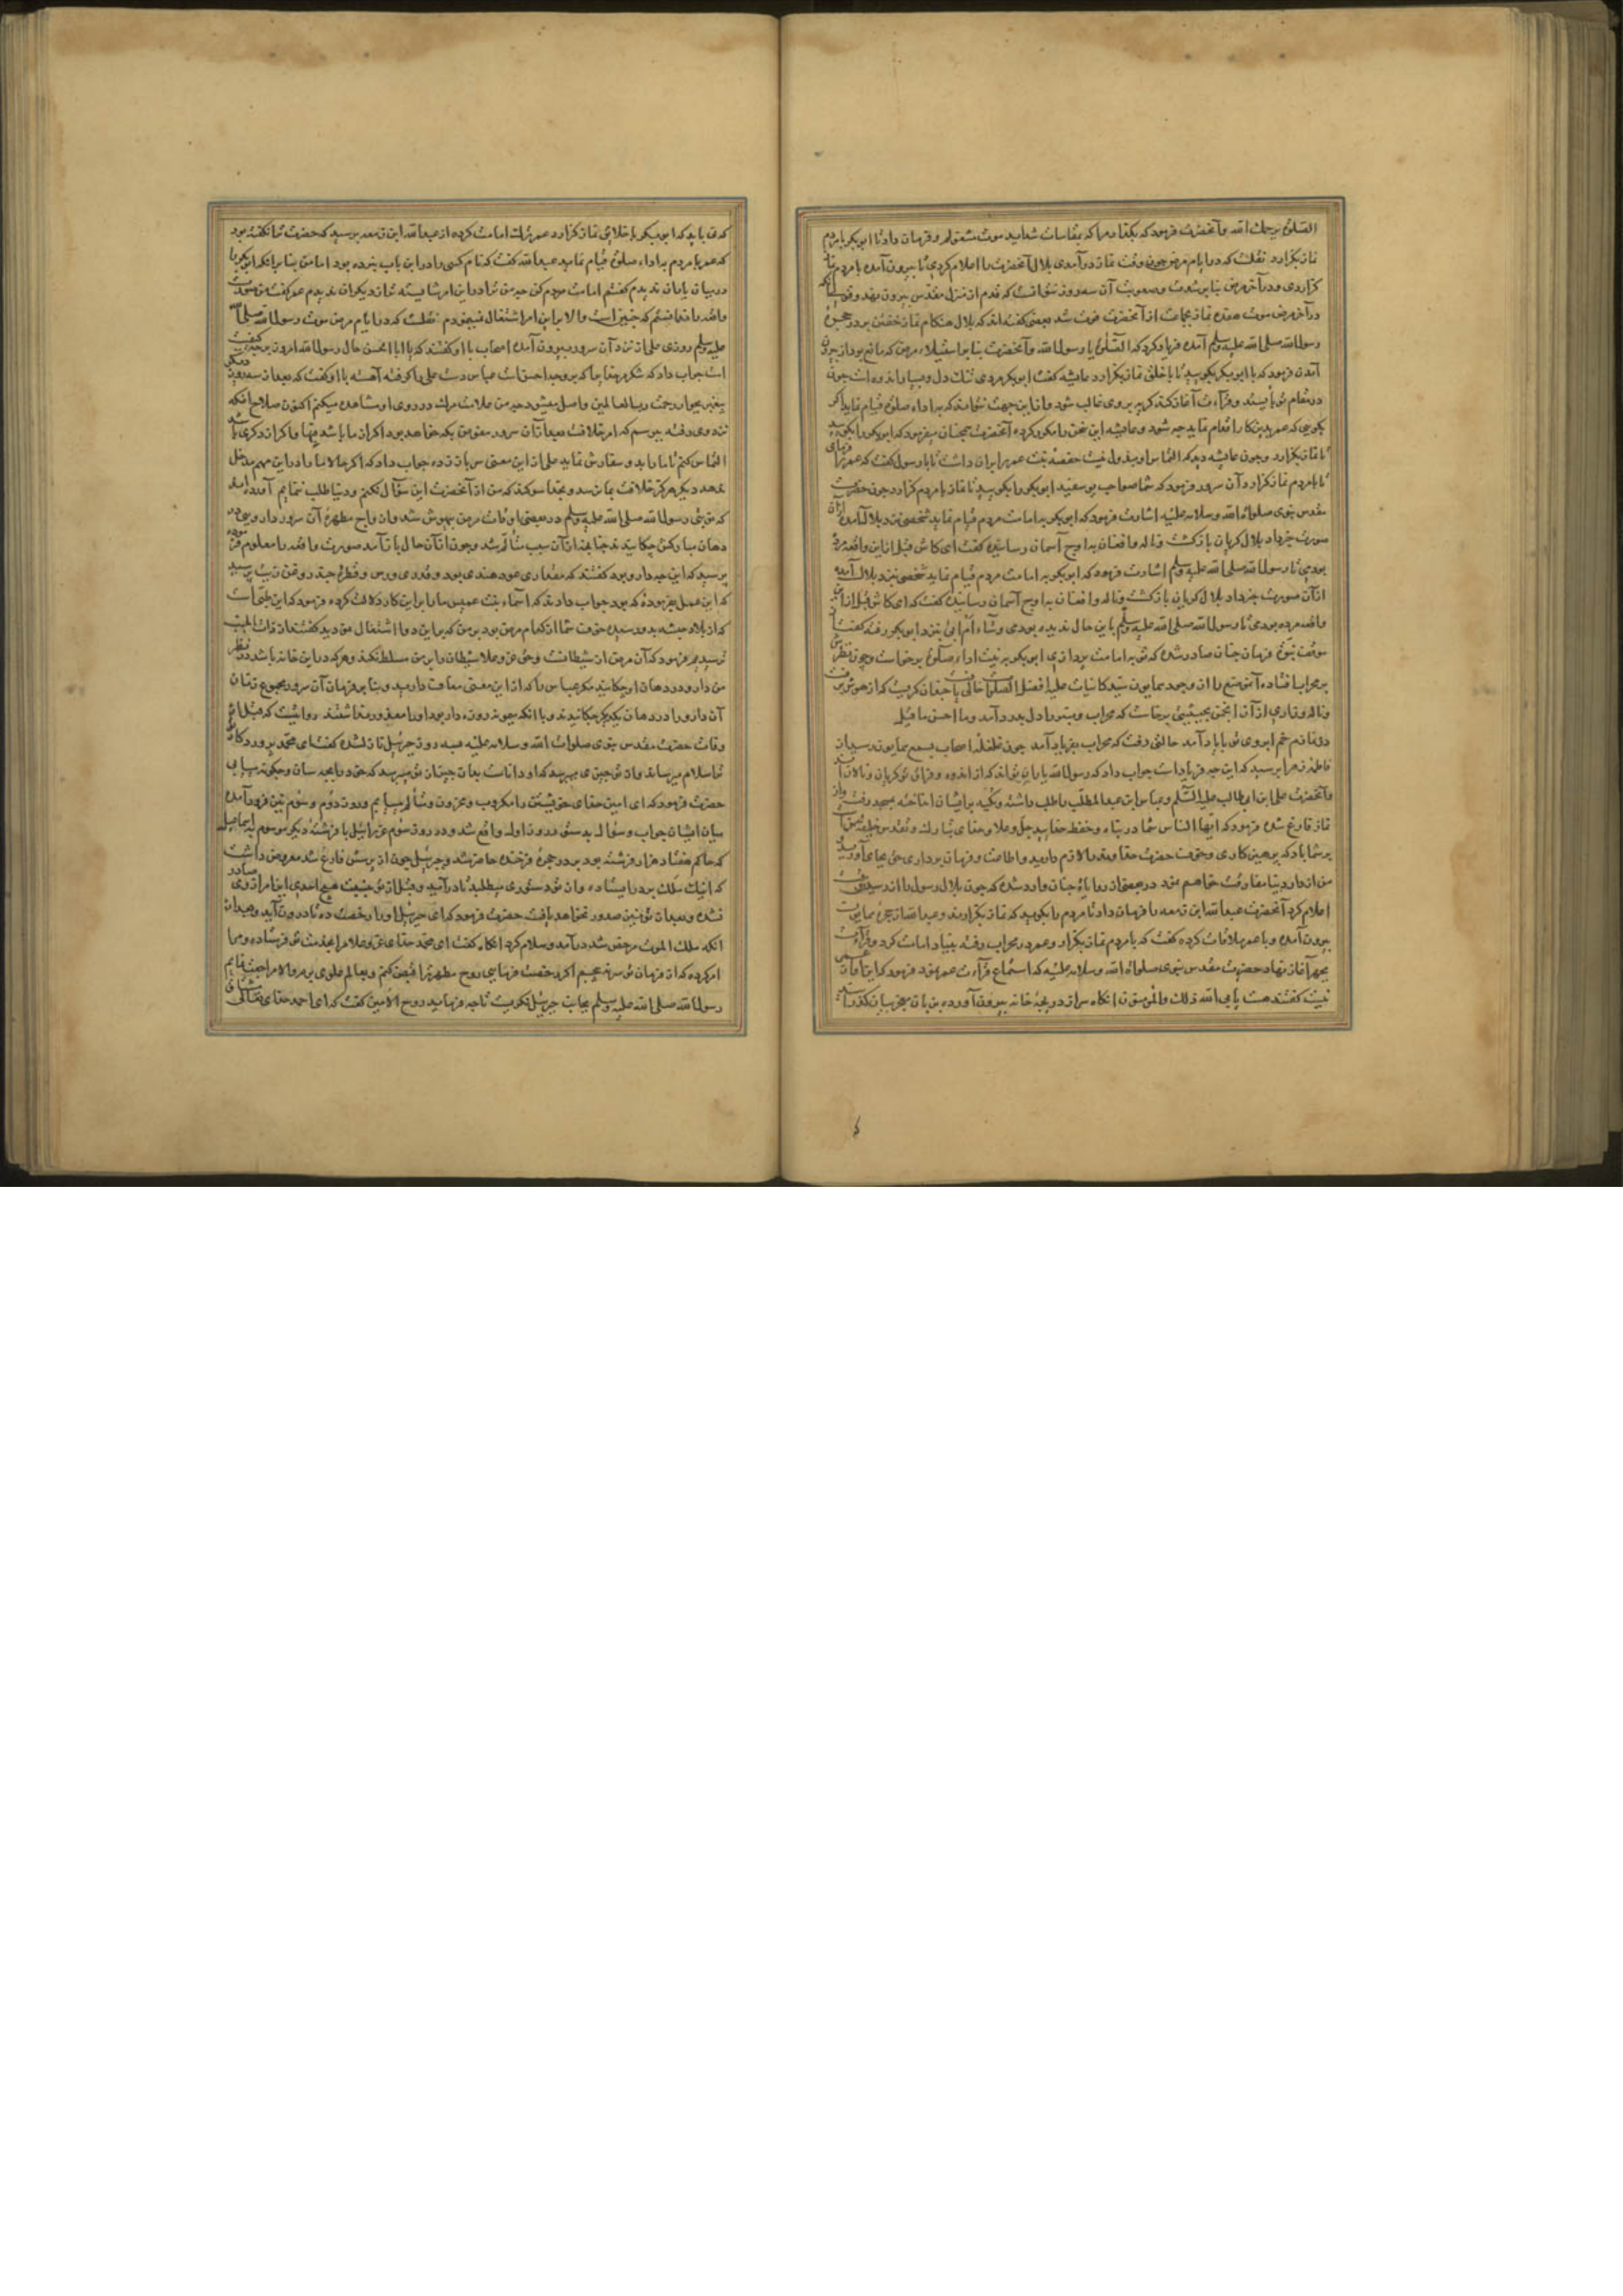 الصلوة یرحمک الله وآنحضرت فرمود که بگذار مرا که بمقاسات شداید موت مشغولم و فرمان داد تا ابوبکر با مردم
نماز بگزارد نقلست که در ایام مرض چون وقت نماز درآمدی بلال آنحضرت را اعلام کردی تا بیرون آمده با مردم نماز
کزاردی و در آخر مرض بنابر شدت و صعوبت آن سه روز نتوانست که قدم از منزل مقدس بیرون نهد و قولی آنکه
در آخر مرض موت هفده نماز بجماعت از آنحضرت فوت شد بعضی گفته اند که بلال هنکام نماز خفتن بر در حجرهٔ
رسول الله صلی الله علیه وسلم آمده فریاد کرد که الصلوة یا رسول الله و آنحضرت بنابر استیلاء مرض که مانع بود از بیرون
آمدن فرمود که با ابوبکر بگویید تا با خلق نماز بگزارد عایشه گفت ابوبکر مردی تنک دل و بسیار اندوه است چون
در مقام تو بایستد و قرآءت آغاز کند گریه بر وی غالب شود و از این جهت نتواند که به اداء صلوة قیام نماید اگر
بگویی که عمر بدین کار اقدام نماید چه شود و عایشه این سخن را مکرر کرده آنحضرت همچنان میفرمود که ابوبکر را بگویید
تا نماز بگزارد و چون عایشه دید که التماس او مبذول نیست حفصه بنت عمر را بران داشت تا با رسول گفت که عمر را فرمای
تا با مردم نماز بگزارد آن سرور فرمود که شما صواحب یوسفید ابوبکر را بگویید تا نماز با مردم گزارد چون حضرت
مقدس نبوی صلواة الله وسلامه علیه اشارت فرمود که ابوبکر به امامت مردم قیام نماید شخصی نزد بلال آمده از آن
صورت خبر داد بلال گریان بازگشت و ناله و افغان به اوج آسمان رسانیده گفت ای کاش قبل از این واقعه مرده
بودمی تا رسول الله صلی الله علیه وسلم اشارت فرمود که ابوبکر به امامت مردم قیام نماید شخصی نزد بلال آمده
از آن صورت خبر داد بلال گریان بازگشت و ناله و افغان به اوج آسمان رسانیده گفت که ای کاش قبل از این
واقعه مرده بودمی تا رسول الله صلی الله علیه وسلم باین حال ندیده بودمی نزد ابوبکر رفته گفت
فرمان چنان صادر شده که تو به امامت پردازی ابوبکر به نیت اداء صلوة برخاست و چون نظرش
بر محراب افتاد آن موضع را از وجود همایون سید کاینات علیه افضل الصلوات خالی یافت چنان گریست که از هوش برفت
و ناله و زاری از آن انجمن برخاست که محراب و منبر را دل بدرد آمد وما احسن ما قیل
در نمازم خم ابروی تو با یاد آمد حالتی رفت که محراب بفریاد آمد چون غلغلهٔ اصحاب بسمع همایون رسید از
فاطمه زهرا پرسید که این چه فریادست جواب داد که رسول الله یارانند که از اندوه و فراق تو گریان و نالان اند
و آنحضرت علی ابن ابی طالب علیه السلام و عباس ابن عبد المطلب را طلب داشته و تکیه بر ایشان انداخته بمسجد رفت و از
نماز فارغ شده فرمود که ایها الناس شما در پناه و حفظ خدایید جل وعلا و خدای تبارک و تقدس خلیفه من است
بر شما باد که پرهیزکاری و حرمت حضرت خداوند را لازم دارید و اطاعت و فرمان برداری حق بجای آورید
من از دار دنیا مفارقت خواهم نمود در بعضی از روایات چنان وارد شده که چون بلال رسول را از رسیدن وقت
اعلام کرد آنحضرت عبد الله ابن زمعه را فرمان داد تا مردم را بگوید که نماز بگزارند و عبد الله از حجرهٔ همایون
بیرون آمده و با عمر ملاقات کرده گفت که با مردم نماز بگزار و عمر در محراب رفته بنیاد امامت کرد و قرآءت
بجهر آغاز نهاد حضرت مقدس نبوی صلواة الله وسلامه علیه که استماع قرآءت عمر نمود فرمود که این آواز عمر
نیست گفتند هست یابی الله ذلک والمؤمنون انکاه سر از دریچه خانه بیرون آورده بر زبان معجز بیان گذرانید
که می باید که ابوبکر با خلایق نماز گزارد عمر ترک امامت کرده از عبد الله ابن زمعه پرسید که حضرت ترا نگفته بود
که عمر با مردم به اداء صلوة قیام نماید عبد الله گفت که نام کسی را در این باب نبرده بود اما من بنا بر آنکه ابوبکر را
در میان یاران ندیدم گفتم امامت مردم کن چه من ترا در این امر شایسته تر از دیگران ندیدم عمر گفت
والله ندانستم که چنین است والا بر این امر اشتغال نمینمودم نقلست که در ایام مرض موت رسول الله صلی الله
علیه وسلم روزی علی از نزد آن سرور بیرون آمده اصحاب با او گفتند که یا ابا الحسن حال رسول الله امروز بر چه کیفیت
است جواب داد که شکر مر خدای را که بر وجه احسن است عباس دست علی را گرفته آهسته با او گفت که بعد از سه روز دیگر
پیغمبر بجوار رحمت رب العالمین واصل میشود چه من علامت مرگ در روی او مشاهده میکنم اکنون صلاح آنکه
نزد وی رفته بپرسم که امر خلافت بعد از آن سرور مفوض به که خواهد بود اگر از ما باشد فبها و اگر از دیگری باشد
التماس کنم تا ما را بدو سفارش نماید علی از این معنی سر باز زده جواب داد که اگر حالا ما را در این مهم مدخل
ندهد دیگر هرگز خلافت بما نرسد و بخدا سوگند که من از آنحضرت این سؤال نکنم و دنیا طلب ننمایم آورده اند
که نوبتی رسول الله صلی الله علیه وسلم در بعضی اوقات مرض بیهوش شد و ازواج مطهرهٔ آن سرور دارویی در
دهان مبارکش چکانیدند چنانچه از آن سبب متألم شد و چون از آن حال باز آمد صورت واقعه را معلوم فرموده
پرسید که این چه دارو بود گفتند که مقداری عود هندی بود و قدری ورس و قطرهٔ چند روغن زیت پرسید
که این عمل بفرمودهٔ که بود جواب دادند که اسماء بنت عمیس ما را بر این کار دلالت کرده فرمود که این طبی است
که از بلاد حبشه بدو رسیده
من دارو در دهان او چکانید مگر عباس را که از این معنی معاف دارید و بنابر فرمان آن سرور مجموع زنان
آن دارو را در دهان یکدیگر چکانیدند و با آنکه میمونه روزه دار بود او را معذور نداشتند روایتست که قبل از
وفات حضرت مقدس نبوی صلوات الله وسلامه علیه بسه روز جبرئیل نازل شده گفت ای محمد پروردگار
ترا سلام میرساند و از تو چیزی میپرسد که او داناست بدان چیز از تو میپرسد که خود را بچه سان و چگونه مییابی
حضرت فرمود که ای امین خدای خویشتن را مکروب و محزون و متألم مییابم و روز دوم و سوم نیز فرود آمده
میان ایشان جواب و سؤال بدستور روز اول واقع شد و در روز سوم عزرائیل با فرشتهٔ دیگر موسوم به اسماعیل
که حاکم هفتاد هزار فرشته بود بر در حجرهٔ فرخنده حاضر شد و جبرئیل چون از پرسش فارغ شد معروض داشت
که اینک ملک بر در ایستاده و از تو دستوری میطلبد تا درآید و قبل از تو بنسبت هیچ احدی این امر از وی صادر
نشده و بعد از تو نیز صدور نخواهد یافت حضرت فرمود که ای جبرئیل او را رخصت ده تا درون آید و بعد از
آنکه ملک الموت مرخص شد درآمد و سلام کرد انکاه گفت ای محمد خدای عز وعلا مرا بخدمت تو فرستاده و مرا
امر کرده که از فرمان تو سر نپیچم اگر رخصت فرمایی روح مطهر ترا قبض کنم و بعالم علوی برم والا مراجعت نمایم
رسول الله صلی الله علیه وسلم بجانب جبرئیل نگریست تا چه فرماید روح الامین گفت که ای احمد خدای تعالی مشتاق